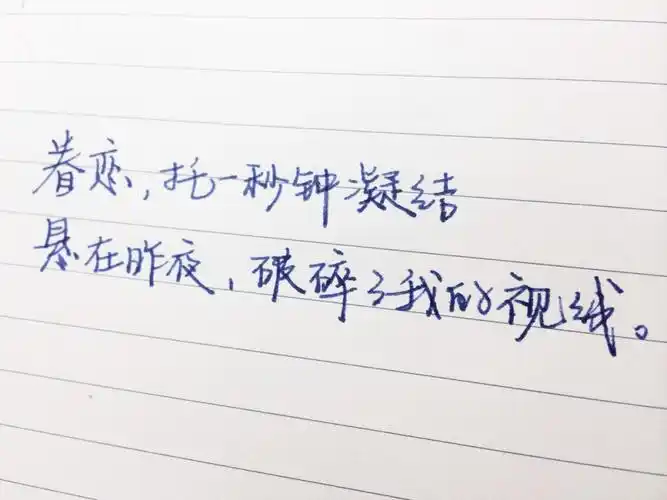 眷恋,托一秒钟凝结
悬在昨夜,破碎了我的视线。